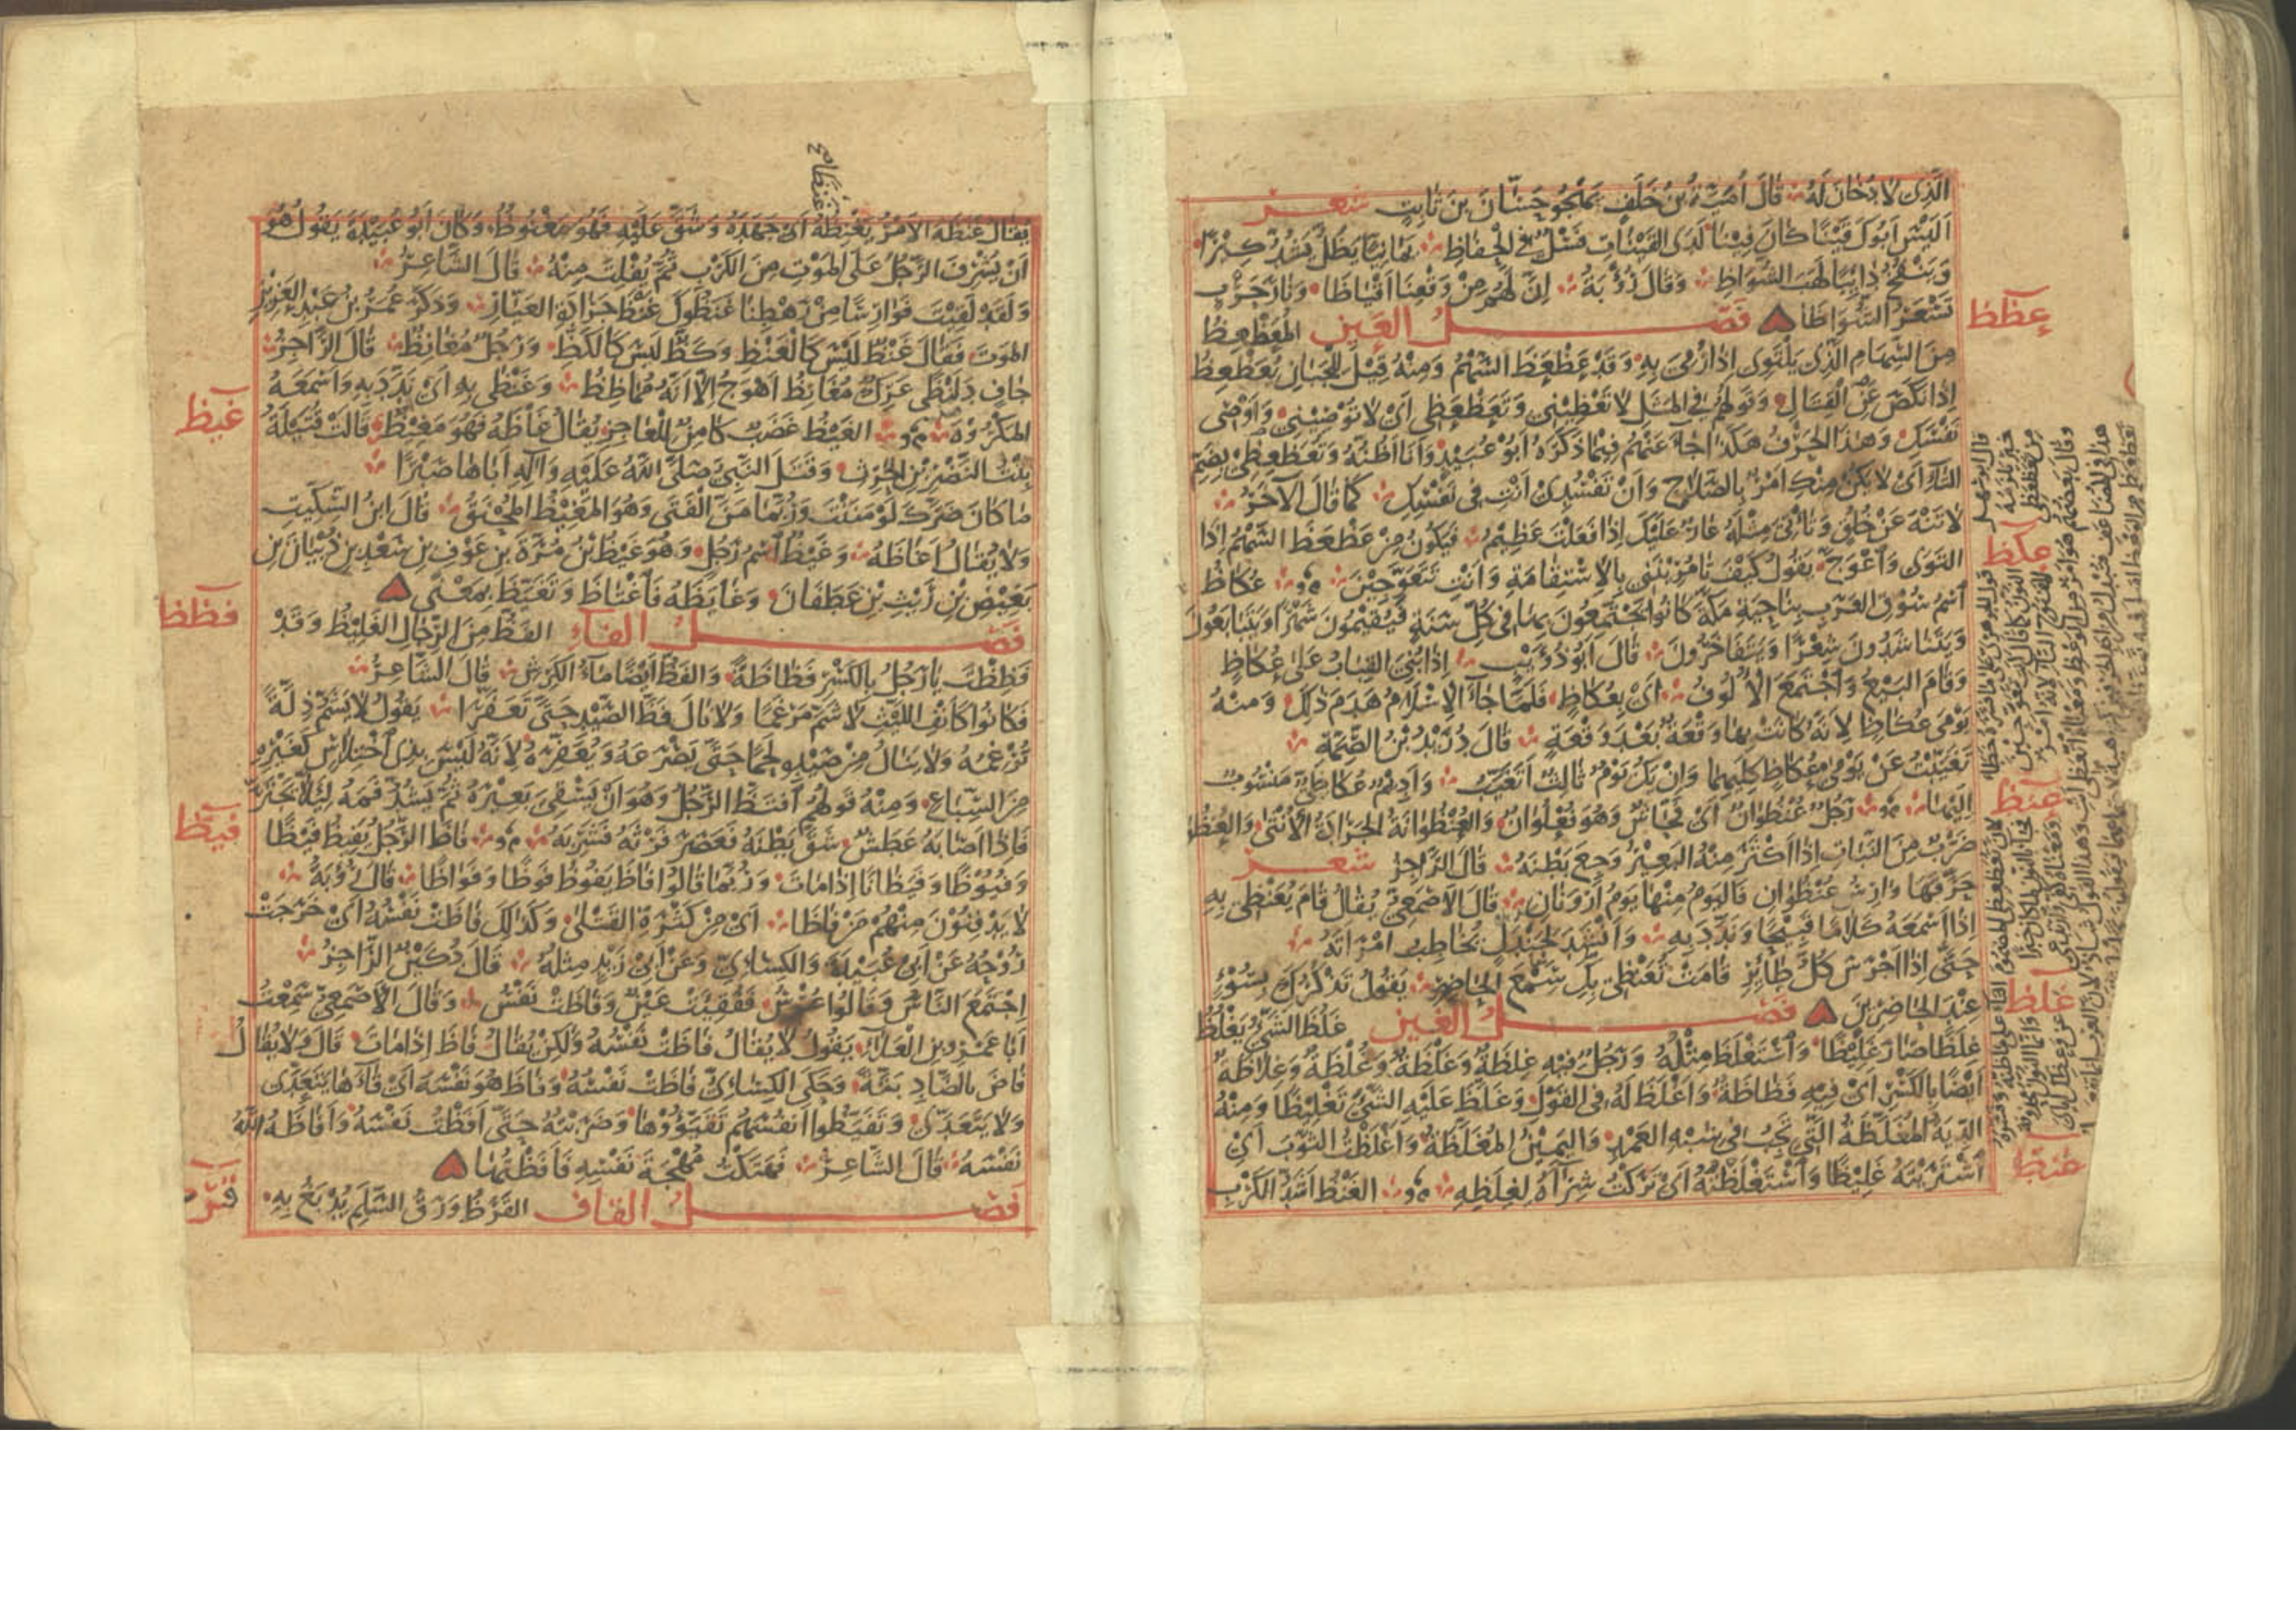 الَّذِى لَا دُخَانَ لَهُ قَالَ أُمَيَّةُ بْنُ خَلَفٍ يَهْجُو حَسَّانَ بْنَ ثَابِتٍ شعر
اَلَيْسَ اَبُوكَ قَيْنًا كَانَ فِينَا لَدَى القَيْنَاتِ فَسْلٌ فِى الْحِفَاظِ يَمَانِيًا يَظَلُّ يَشُدُّ كِيرًا
وَيَنْفُخُ دَائِبًا لَهَبَ الشُّوَاظِ وَقَالَ رُؤْبَةُ اِنَّ لَهُمْ مِنْ وَقْعِنَا اَقْيَاظَا وَنَارَ حَرْبٍ
تُسْعِرُ الشُّوَاظَا فصل العين المُعَظْعِظُ
مِنَ السِّهَامِ الَّذِى يَلْتَوِى اِذَا رُمِىَ بِهِ وَقَدْ عَظْعَظَ السَّهْمُ وَمِنْهُ قِيلَ لِلْجَبَانِ يُعَظْعِظُ
اِذَا نَكَصَ عَنِ القِتَالِ وَقَوْلُهُمْ فِى المَثَلِ لَا تَعِظِيْنِى وَتَعَظْعَظِى اَىْ لَا تُوْصِيْنِى وَاَوْصِى
نَفْسَكِ وَهٰذَا الحَرْفُ هٰكَذَا جَاءَ عَنْهُمْ فِيْمَا ذَكَرَهُ اَبُو عُبَيْدٍ وَاَنَا اَظُنُّهُ وَتُعَظْعِظِى بِضَمِّ
التَّاءِ اَىْ لَا يَكُنْ مِنْكِ اَمْرٌ بِالصَّلَاحِ وَاَنْ تَفْسُدِىْ اَنْتِ فِى نَفْسِكِ كَمَا قَالَ الآخَرُ
لَا تَنْهَ عَنْ خُلُقٍ وَتَأْتِىَ مِثْلَهُ عَارٌ عَلَيْكَ اِذَا فَعَلْتَ عَظِيْمُ فَيَكُونُ مِنْ عَظْعَظَ السَّهْمُ اِذَا
التَوَى وَاعْوَجَّ يَقُولُ كَيْفَ تَأْمُرِيْنَنِى بِالاِسْتِقَامَةِ وَاَنْتِ تَتَعَوَّجِيْنَ عُكَاظُ
اسْمُ سُوْقِ العَرَبِ بِنَاحِيَةِ مَكَّةَ كَانُوا يَجْتَمِعُوْنَ بِهَا فِى كُلِّ سَنَةٍ فَيُقِيْمُونَ شَهْرًا وَيَتَبَايَعُونَ
وَيَتَنَاشَدُونَ شِعْرًا وَيَتَفَاخَرُونَ قَالَ اَبُو ذُؤَيْبٍ اِذَا بُنِىَ القِبَابُ عَلَى عُكَاظٍ
وَقَامَ البَيْعُ وَاجْتَمَعَ الأُلُوفُ اَىْ بِعُكَاظٍ فَلَمَّا جَاءَ الاِسْلَامُ هَدَمَ ذٰلِكَ وَمِنْهُ
يَوْمَى عُكَاظٍ لِاَنَّهُ كَانَتْ بِهَا وَقْعَةٌ بَعْدَ وَقْعَةٍ قَالَ دُرَيْدُ بْنُ الصِّمَّةِ
تَغَيَّبْتُ عَنْ يَوْمَى عُكَاظٍ كِلَيْهِمَا وَاِنْ يَكُ يَوْمٌ ثَالِثٌ اَتَغَيَّبُ وَاَدِيْمٌ عُكَاظِىٌّ مَنْسُوْبٌ
اِلَيْهَا رَجُلٌ عُنْظُوَانٌ اَىْ فَحَّاشٌ وَهُوَ فُعْلُوَانٌ وَالعُنْظُوَانَةُ الجَرَادَةُ الأُنْثَى وَالعُنْظُوَانُ
ضَرْبٌ مِنَ النَّبَاتِ اِذَا اَكْثَرَ مِنْهُ البَعِيْرُ وَجِعَ بَطْنُهُ قَالَ الرَّاجِزُ شعر
حَرَّقَهَا وَارِسُ عُنْظُوَانِ فَاليَوْمُ مِنْهَا يَوْمُ اَرْوَنَانِ قَالَ الأَصْمَعِىُّ يُقَالُ قَامَ يُعَنْظِى بِهِ
اِذَا اَسْمَعَهُ كَلَامًا قَبِيْحًا وَنَدَّدَ بِهِ وَاَنْشَدَ لِجَنْدَلٍ يُخَاطِبُ امْرَاَتَهُ
حَتَّى اِذَا اَجْرَسَ كُلُّ طَائِرِ قَامَتْ تُعَنْظِى بِكِ سَمْعَ الحَاضِرِ يَقُولُ تَذْكُرُكِ بِسُوْءٍ
عِنْدَ الحَاضِرِيْنَ فصل الغين غَلُظَ الشَّىْءُ يَغْلُظُ
غِلَظًا صَارَ غَلِيْظًا وَاسْتَغْلَظَ مِثْلُهُ وَرَجُلٌ فِيْهِ غِلْظَةٌ وَغَلْظَةٌ وَغُلْظَةٌ وَغِلَاظَةٌ
اَيْضًا بِالكَسْرِ اَىْ فِيْهِ فَظَاظَةٌ وَاَغْلَظَ لَهُ فِى القَوْلِ وَغَلَّظَ عَلَيْهِ الشَّىْءَ تَغْلِيْظًا وَمِنْهُ
الدِّيَةُ المُغَلَّظَةُ الَّتِى تَجِبُ فِى شِبْهِ العَمْدِ وَاليَمِيْنُ المُغَلَّظَةُ وَاَغْلَظْتُ الثَّوْبَ اَىْ
اشْتَرَيْتُهُ غَلِيْظًا وَاسْتَغْلَظْتُهُ اَىْ تَرَكْتُ شِرَاءَهُ لِغِلَظِهِ الغَنْظُ اَشَدُّ الكَرْبِ
عظظ
عكظ
عنظ
غلظ
غنظ
يُقَالُ غَنَظَهُ الأَمْرُ يَغْنِظُهُ اَىْ جَهَدَهُ وَشَقَّ عَلَيْهِ فَهُوَ مَغْنُوظٌ وَكَانَ اَبُو عُبَيْدَةَ يَقُولُ هُوَ
اَنْ يُشْرِفَ الرَّجُلُ عَلَى المَوْتِ مِنَ الكَرْبِ ثُمَّ يُفْلِتَ مِنْهُ قَالَ الشَّاعِرُ
وَلَقَدْ لَقِيْتَ فَوَارِسًا مِنْ رَهْطِنَا غَنَظُوْكَ غَنْظَ جَرَادَةِ العَيَّارِ وَذَكَرَ عُمَرُ بْنُ عَبْدِ العَزِيْزِ
المَوْتَ فَقَالَ غَنْظٌ لَيْسَ كَالْغَنْظِ وَكَظٌّ لَيْسَ كَالكَظِّ وَرَجُلٌ مُغَانِظٌ قَالَ الرَّاجِزُ
جَافٍ دَلَنْظَى عَرِكٌ مُغَانِظُ اَهْوَجُ اِلَّا اَنَّهُ مُمَاظِظُ وَغَنْظَى بِهِ اَىْ نَدَّدَ بِهِ وَاَسْمَعَهُ
المَكْرُوْهَ الغَيْظُ غَضَبٌ كَامِنٌ لِلْعَاجِزِ يُقَالُ غَاظَهُ فَهُوَ مَغِيْظٌ قَالَتْ قُتَيْلَةُ
بِنْتُ النَّضْرِ بْنِ الحٰرِثِ وَقَتَلَ النَّبِىُّ صَلَّى اللّٰهُ عَلَيْهِ وَآلِهِ اَبَاهَا صَبْرًا
مَا كَانَ ضَرَّكَ لَوْ مَنَنْتَ وَرُبَّمَا مَنَّ الفَتَى وَهُوَ المَغِيْظُ المُحْنَقُ قَالَ ابْنُ السِّكِّيْتِ
وَلَا يُقَالُ اَغَاظَهُ وَغَيْظٌ اسْمُ رَجُلٍ وَهُوَ غَيْظُ بْنُ مُرَّةَ بْنِ عَوْفِ بْنِ سَعْدِ بْنِ ذُبْيَانَ بْنِ
بَغِيْضِ بْنِ رَيْثِ بْنِ غَطَفَانَ وَغَايَظَهُ فَاغْتَاظَ وَتَغَيَّظَ بِمَعْنًى
فصل الفاء الفَظُّ مِنَ الرِّجَالِ الغَلِيْظُ وَقَدْ
فَظِظْتَ يَا رَجُلُ بِالكَسْرِ فَظَاظَةً وَالفَظُّ اَيْضًا مَاءُ الكَرِشِ قَالَ الشَّاعِرُ
فَكَانُوا كَاَنْفِ اللَّيْثِ لَا شَمَّ مَرْغَمًا وَلَا نَالَ فَظَّ الصَّيْدِ حَتَّى تَعَفَّرَا يَقُولُ لَا يَشَمُّ ذِلَّةً
تُرْغِمُهُ وَلَا يَنَالُ مِنْ صَيْدِهِ لَحْمًا حَتَّى يَصْرَعَهُ وَيُعَفِّرَهُ لِاَنَّهُ لَيْسَ بِذِى اخْتِلَاسٍ كَغَيْرِهِ
مِنَ السِّبَاعِ وَمِنْهُ قَولُهُمُ افْتَظَّ الرَّجُلُ وَهُوَ اَنْ يَسْقِىَ بَعِيْرَهُ ثُمَّ يَشُدَّ فَمَهُ لِئَلَّا يَجْتَرَّ
فَاِذَا اَصَابَهُ عَطَشٌ شَقَّ بَطْنَهُ فَعَصَرَ فَرْثَهُ فَشَرِبَهُ فَاظَ الرَّجُلُ يَفِيْظُ فَيْظًا
وَفُيُوظًا وَفَيَظَانًا اِذَا مَاتَ وَرُبَّمَا قَالُوا فَاظَ يَفُوظُ فَوْظًا وَفَوَاظًا قَالَ رُؤْبَةُ
لَا يَدْفِنُوْنَ مِنْهُمُ مَنْ فَاظَا اَىْ مِنْ كَثْرَةِ القَتْلَى وَكَذٰلِكَ فَاظَتْ نَفْسُهُ اَىْ خَرَجَتْ
رُوْحُهُ عَنْ اَبِى عُبَيْدَةَ وَالكِسَائِىِّ وَعَنْ اَبِى زَيْدٍ مِثْلُهُ قَالَ دُكَيْنٌ الرَّاجِزُ
اِجْتَمَعَ النَّاسُ وَقَالُوا عُرْسُ فَفُقِئَتْ عَيْنٌ وَفَاظَتْ نَفْسُ وَقَالَ الأَصْمَعِىُّ سَمِعْتُ
اَبَا عَمْرِو بْنَ العَلَاءِ يَقُولُ لَا يُقَالُ فَاظَتْ نَفْسُهُ وَلٰكِنْ يُقَالُ فَاظَ اِذَا مَاتَ قَالَ وَلَا يُقَالُ
فَاضَ بِالضَّادِ بَتَّةً وَحَكَى الكِسَائِىُّ فَاظَتْ نَفْسُهُ وَفَاظَ هُوَ نَفْسَهُ اَىْ قَاءَهَا يَتَعَدَّى
وَلَا يَتَعَدَّى وَتَفَيَّظُوا اَنْفُسَهُمْ تَقَيَّؤُوْهَا وَضَرَبْتُهُ حَتَّى اَفَظْتُ نَفْسَهُ وَاَفَاظَهُ اللّٰهُ
نَفْسَهُ قَالَ الشَّاعِرُ فَهَتَكْتُ مُهْجَةَ نَفْسِهِ فَاَفَظْتُهَا
فصل القاف القَرَظُ وَرَقُ السَّلَمِ يُدْبَغُ بِهِ
غيظ
فظظ
فيظ